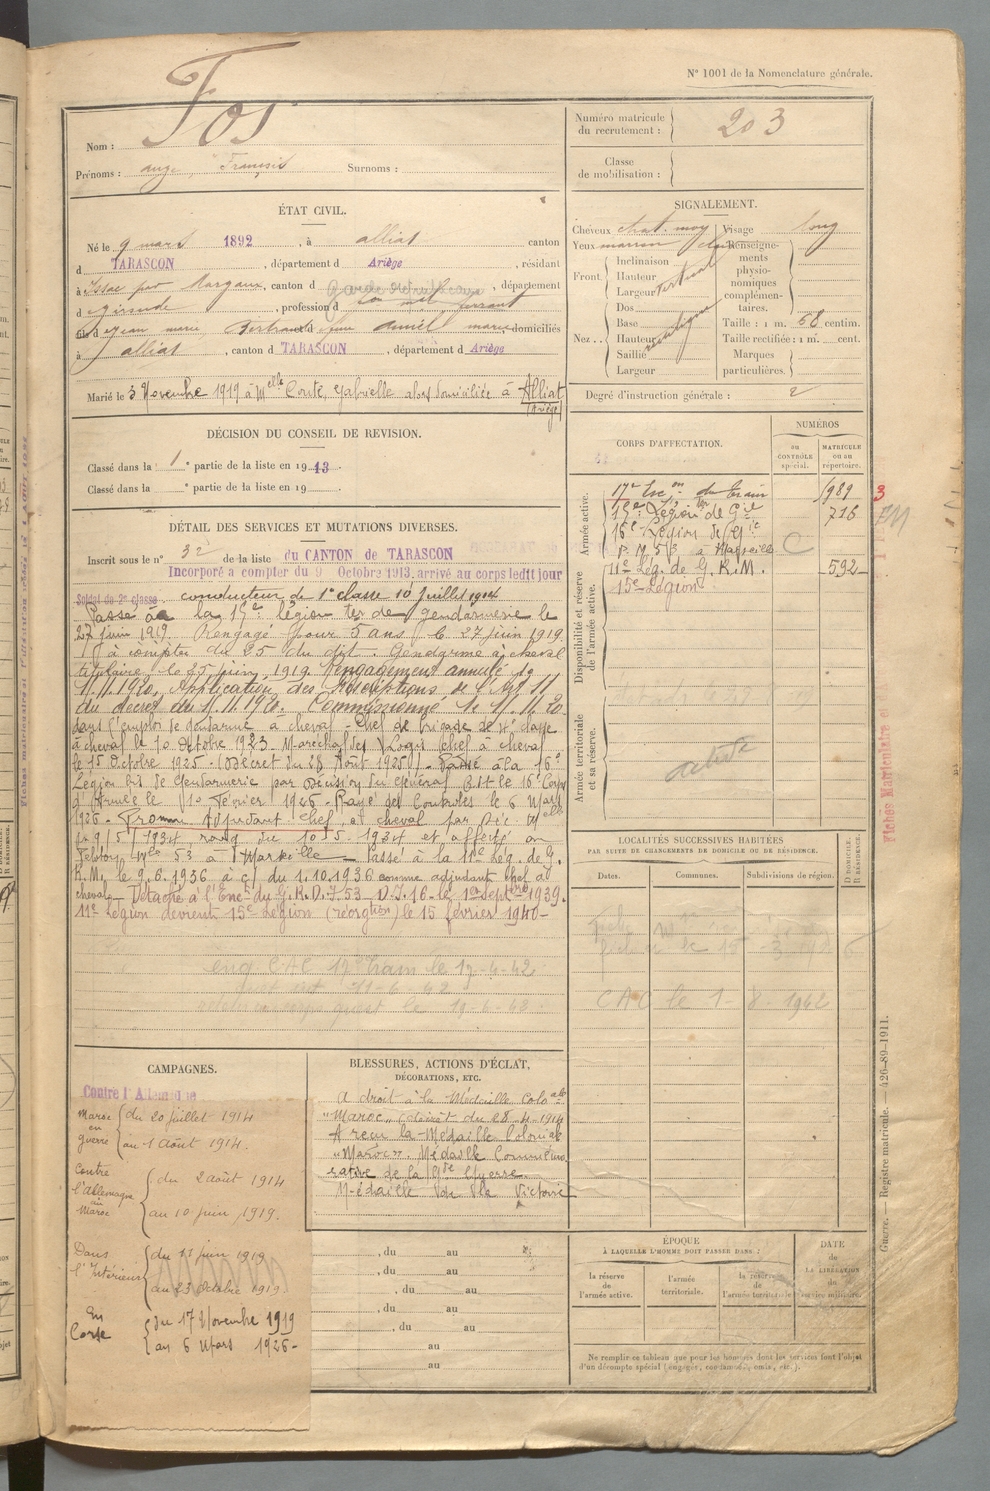 N° 1001 de la Nomenclature générale.
Nom : Fos
Prénoms : ange, François Surnoms :
Numéro matricule du recrutement : 203
Classe de mobilisation :
ÉTAT CIVIL.
Né le 9 mars 1892, à alliat canton
d TARASCON, département d Ariège, résidant
à Issac par Margaux, canton d , département
d Gironde, profession d
fils d Jean marie, et d marie domiciliés
à alliat, canton d TARASCON, département d Ariège
Marié le 3 Novembre 1919 à Melle Conte, Gabrielle alors domiciliée à Alliat
(Ariège)
SIGNALEMENT.
Cheveux chat. moy Visage long
Yeux marron clair
Renseignements physionomiques complémentaires.
Front Inclinaison
Hauteur
Largeur
Nez Dos
Base
Hauteur
Saillie
Largeur
Taille : 1 m. 68 centim.
Taille rectifiée : 1 m. cent.
Marques particulières.
Degré d'instruction générale : 2
DÉCISION DU CONSEIL DE REVISION.
Classé dans la 1e partie de la liste en 1913.
Classé dans la e partie de la liste en 19
DÉTAIL DES SERVICES ET MUTATIONS DIVERSES.
Inscrit sous le n° 32 de la liste du CANTON de TARASCON
Incorporé a compter du 9 Octobre 1913, arrivé au corps ledit jour
Soldat de 2e classe. conducteur de 1e classe 10 Juillet 1914
Passé à la 15e légion ter de gendarmerie le
27 juin 1919. Rengagé pour 5 ans le 27 juin 1919
à compter du 25 du dit. Gendarme à cheval
titulaire le 25 juin 1919. Rengagement annulé le
1.11.1920. Application des prescriptions de l'Art 11
du décret du 1.11.1920. Commissionné le 1.11.20
dans l'emploi de gendarme à cheval - Chef de brigade de 4e classe
à cheval le 10 Octobre 1923 - Maréchal des Logis chef à cheval
le 15 Octobre 1925 - (Décret du 28 Août 1925) - Passé à la 16e
Légion bis de Gendarmerie par décision du Général Ct le 16e Corps
d'Armée le 10 Février 1926 - Rayé des Contrôles le 6 Mars
1926 - Promu Adjudant Chef, à cheval par Déc. Melle
du 9/5/1934 rang du 10.5.1934 et affecté au
Peloton Mle 53 à Marseille - Passé à la 11e Lég. de G.
R.M. le 9.6.1936 à c/ du 1.10.1936 comme adjudant chef à
cheval - Détaché à l'Ene du G.R.D.I. 53 D.I. 16 - le 1er septbre 1939.
11e Légion devient 15e Légion (réorgtion) le 15 février 1940 -
CAC 17e train le 17-4-42
le 19-6-42
CORPS D'AFFECTATION.
NUMÉROS
au CONTRÔLE spécial.
MATRICULE ou au répertoire.
Armée active.
17e Escon du train 1989
15e Légion ter de Gie 716
16e Légion de Gie
P. M. 53 à Marseille C
11e Lég. de G. R. M. 592
15e Légion
Disponibilité et réserve de l'armée active.
Armée territoriale et sa réserve.
LOCALITÉS SUCCESSIVES HABITÉES
PAR SUITE DE CHANGEMENTS DE DOMICILE OU DE RÉSIDENCE.
Dates. Communes. Subdivisions de région. D DOMICILE. R RÉSIDENCE.
CAC le 1-8-1942
CAMPAGNES.
Contre l'Allemagne
Maroc en guerre du 20 juillet 1914
au 1 Août 1914.
Contre l'Allemagne au Maroc du 2 août 1914
au 10 juin 1919.
Dans l'Intérieur du 11 juin 1919
au 23 Octobre 1919
En Corse du 17 Novembre 1919
au 6 Mars 1926 -
BLESSURES, ACTIONS D'ÉCLAT,
DÉCORATIONS, ETC.
A droit à la Médaille Coloale
"Maroc" (décret du 28-4-1914
A reçu la Médaille Coloniale
"Maroc". Médaille Commémo
rative de la Gde Guerre
Médaille de la Victoire
, du au
, du au
, du au
, du au
, du au
au
au
ÉPOQUE
À LAQUELLE L'HOMME DOIT PASSER DANS :
la réserve de l'armée active.
l'armée territoriale.
la réserve de l'armée territoriale
DATE de LA LIBÉRATION du service militaire.
Ne remplir ce tableau que pour les hommes dont les services font l'objet
d'un décompte spécial (engagés, condamnés, omis, etc.).
Guerre. — Registre matricule. — 426-89-1911.
Fiches Matriculaire et